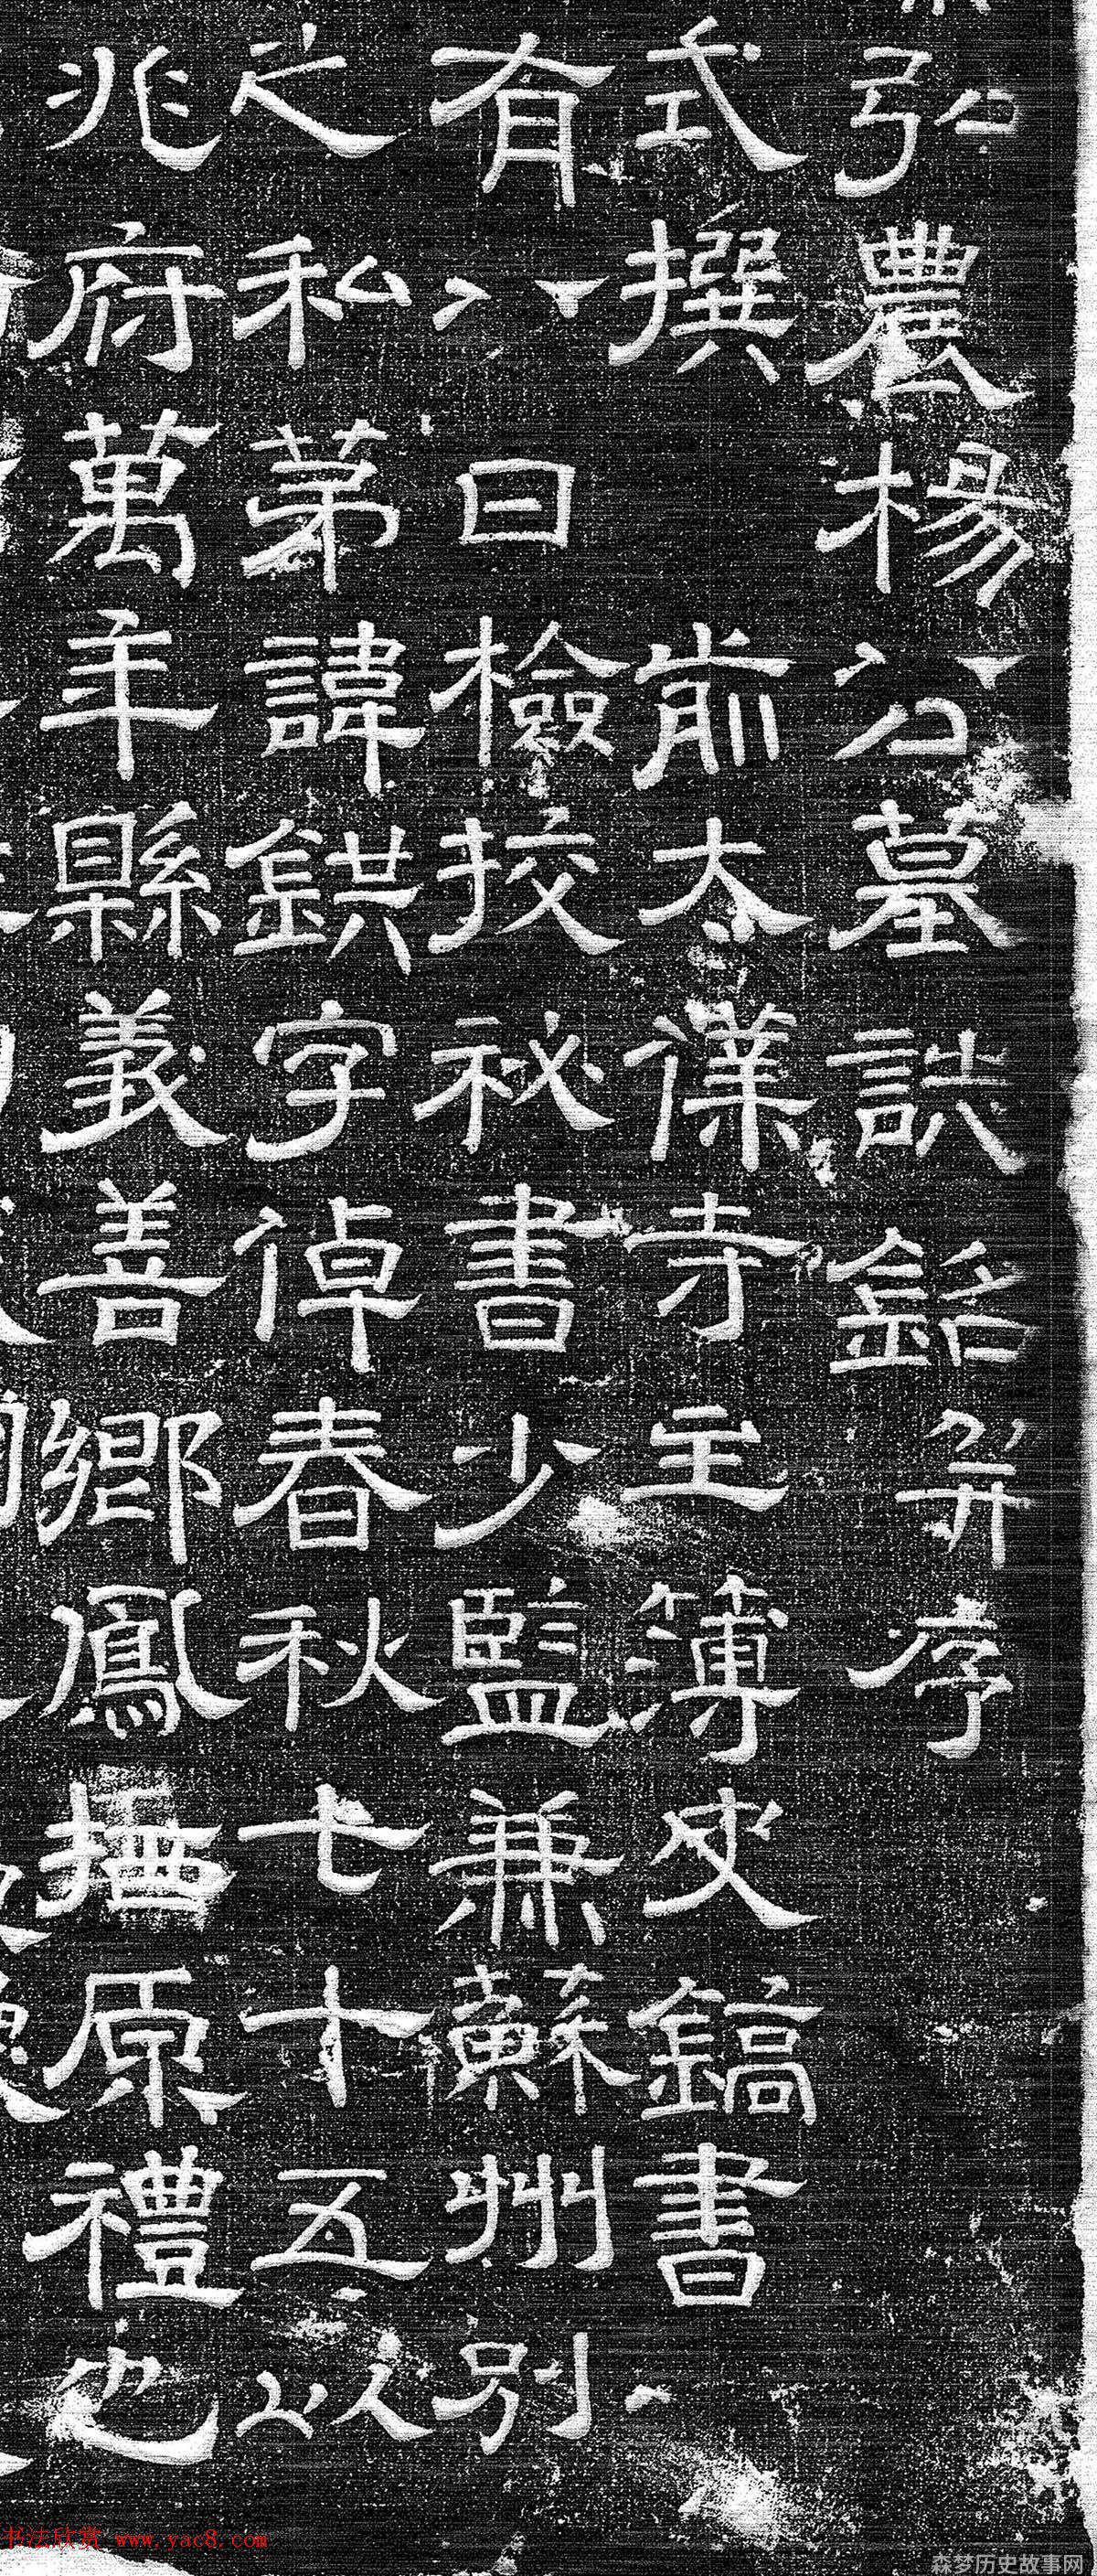 弘農楊公墓誌銘并序
式撰 前太僕寺主簿史鎬書
有八日檢挍秘書少監兼蘇州別
之私苐諱鉷字倬春秋七十五以
兆府萬年縣義善鄉鳳栖原禮也
书法欣赏 www.yac8.com
森梦历史故事网